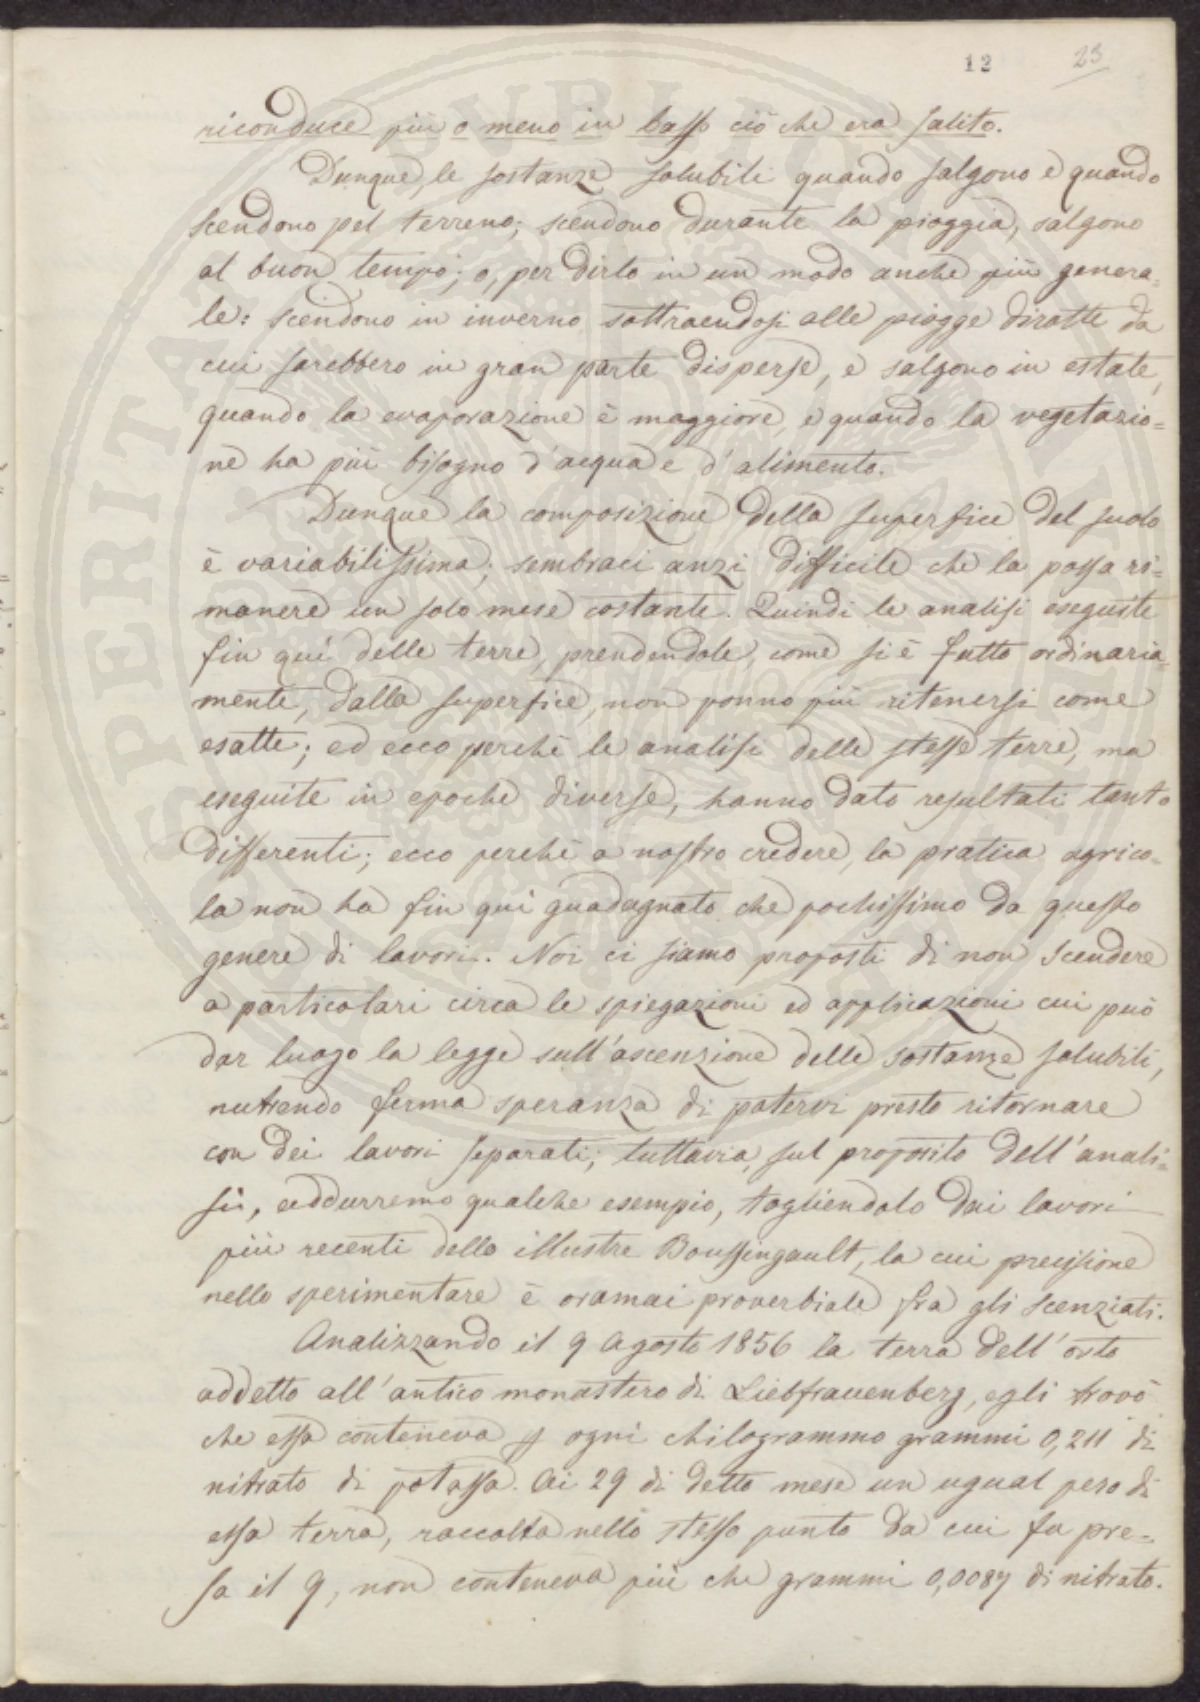 12 23
riconduce più o meno in basso ciò che era salito.
Dunque, le sostanze solubili quando salgono e quando
scendono pel terreno; scendono durante la pioggia, salgono
al buon tempo; o, per dirlo in un modo anche più genera=
le: scendono in inverno sottraendosi alle piogge dirotte da
cui sarebbero in gran parte disperse, e salgono in estate,
quando la evaporazione è maggiore, e quando la vegetazio=
ne ha più bisogno d'acqua e d'alimento.
Dunque la composizione della superfice del suolo
è variabilissima; sembraci anzi difficile che la possa ri=
manere un solo mese costante. Quindi le analisi eseguite
fin quì delle terre, prendendole, come si è fatto ordinaria=
mente, dalla superfice, non ponno più ritenersi come
esatte; ed ecco perchè le analisi delle stesse terre, ma
eseguite in epoche diverse, hanno dato resultati tanto
differenti; ecco perchè a nostro credere, la pratica agrico=
la non ha fin qui guadagnato che pochissimo da questo
genere di lavori. Noi ci siamo proposti di non scendere
a particolari circa le spiegazioni ed applicazioni cui può
dar luogo la legge sull'ascenzione delle sostanze solubili,
nutrendo ferma speranza di potervi presto ritornare
con dei lavori separati; tuttavia, sul proposito dell'anali=
si, addurremo qualche esempio, togliendolo dai lavori
più recenti dello illustre Boussingault, la cui precisione
nello sperimentare è oramai proverbiale fra gli scenziati.
Analizzando il 9 Agosto 1856 la terra dell'orto
addetto all'antico monastero di Liebfrauenberg, egli trovò
che essa conteneva p ogni chilogrammo grammi 0,211 di
nitrato di potassa. Ai 29 di detto mese un ugual peso di
essa terra, raccolta nello stesso punto da cui fu pre=
sa il 9, non conteneva più che grammi 0,0087 di nitrato.
SPERITAT PVBLIC